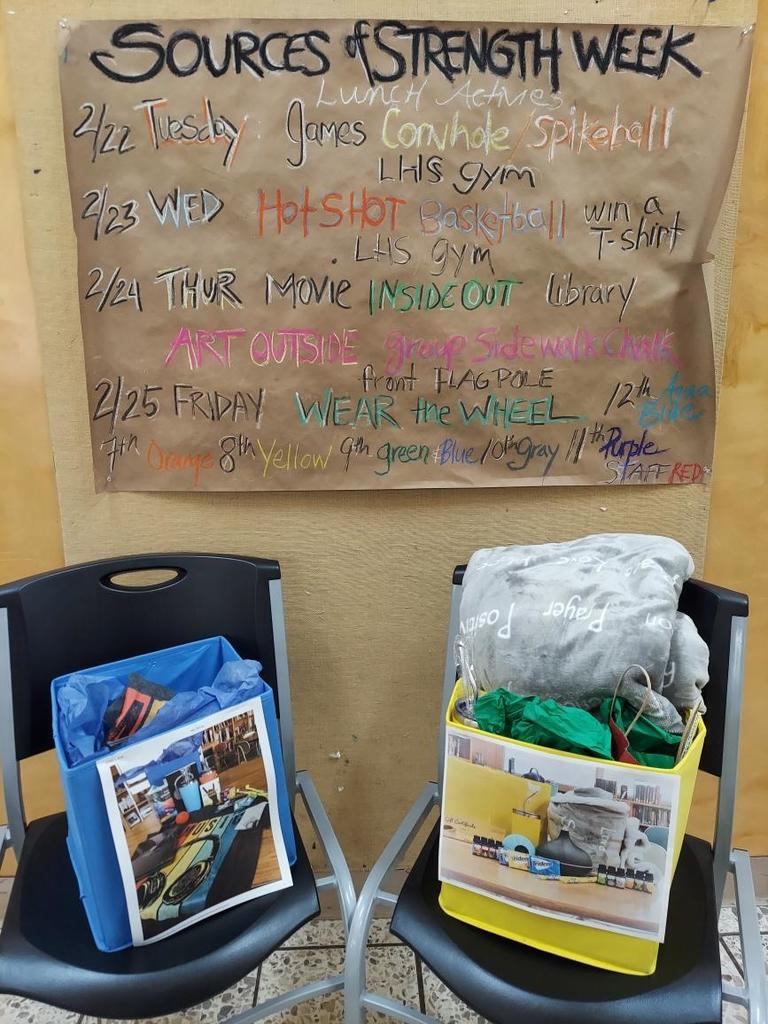 SOURCES of STRENGTH WEEK
Lunch Actives
2/22 Tuesday: games Cornhole/Spikeball
LHS gym
2/23 WED HotSHOT Basketball win a T-shirt
LHS gym
2/24 THUR Movie INSIDE OUT library
ART OUTSIDE group Sidewalk Chalk
front FLAGPOLE
2/25 FRIDAY WEAR the WHEEL 12th Aqua Blue
7th Orange 8th Yellow 9th green & Blue 10th Gray 11th Purple
STAFF RED
Prayer
Positiv
MUSIC
Gift Certificate
trident
trident